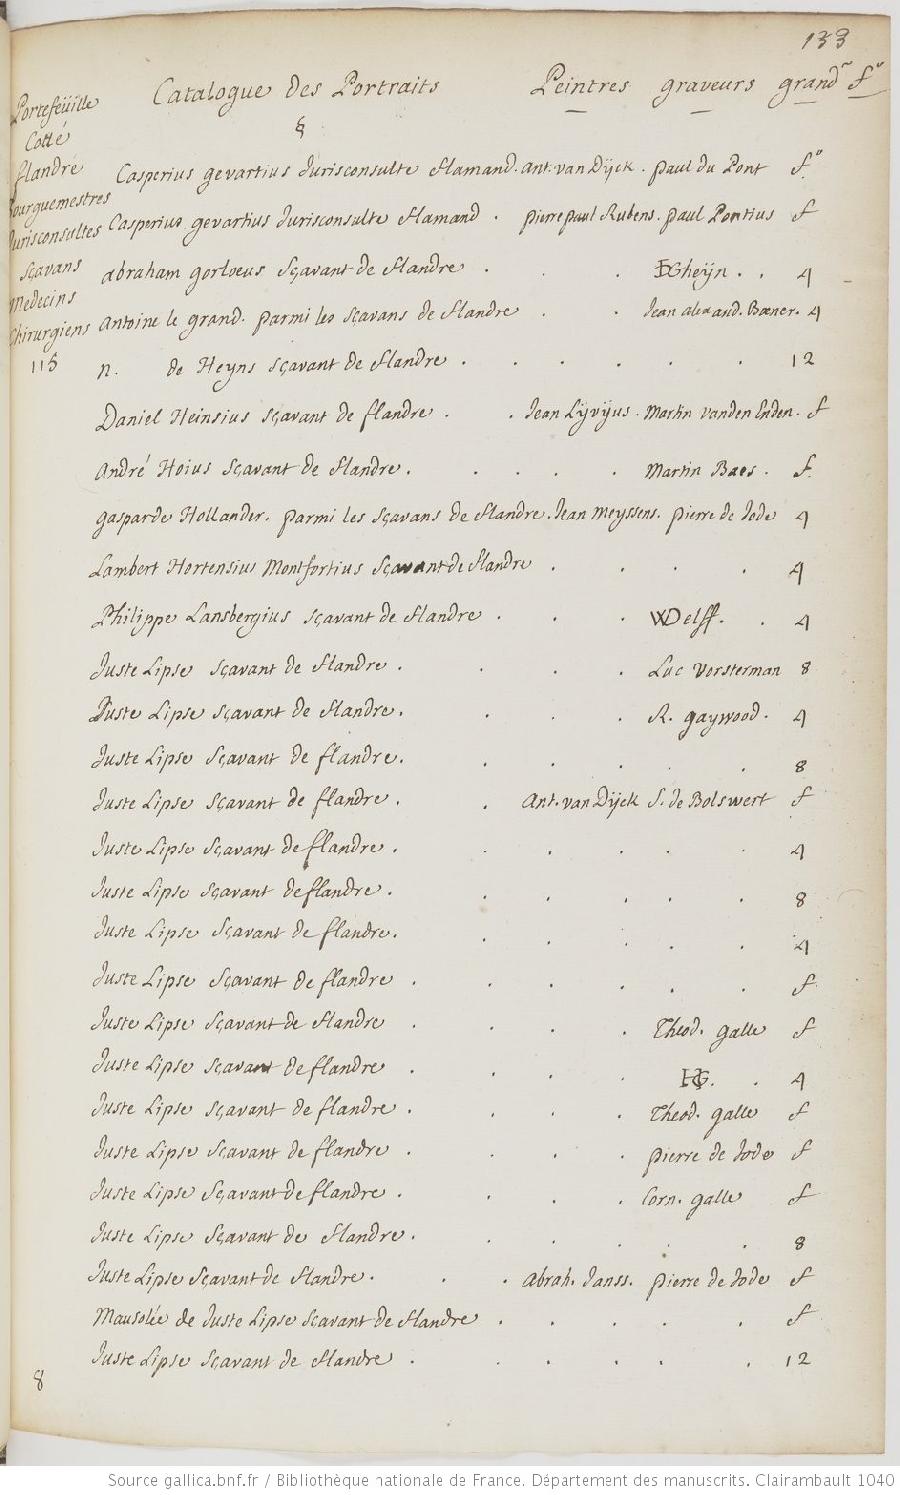 133
Portefëuille Catalogue des Portraits Peintres graveurs grandr fo
Cotté §
flandre Casperius gevartius Jurisconsulte flamand. ant. van Dÿck. paul du Pont fo
Bourguemestres
Jurisconsultes Casperius gevartius Jurisconsulte flamand. pierre paul Rubens. paul Pontius f
Sçavans abraham gorlœus Sçavant de flandre. DGheÿn. 4
Medecins
Chirurgiens Antoine le grand. parmi les sçavans de flandre Jean alexand. Bœner. 4
115 n. de Heyns sçavant de flandre. 12
Daniel Heinsius sçavant de flandre. Jean Lÿvÿus. Martin vanden Enden. f
André Hoius Sçavant de flandre. Martin Baes. f.
gasparde Hollander. parmi les sçavans de flandre. Jean meyssens. pierre de Jode 4
Lambert Hortensius Montfortius Sçavant de flandre. 4
Philippe Lansbergius sçavant de flandre. WDelff. 4
Juste Lipse sçavant de flandre. Luc Vorsterman 8
Juste Lipse sçavant de flandre. R. gaywood. 4
Juste Lipse Sçavant de flandre. 8
Juste Lipse sçavant de flandre. Ant. van Dÿck S. de Bolswert f
Juste Lipse sçavant de flandre. 4
Juste Lipse Sçavant de flandre. 8
Juste Lipse Sçavant de flandre. 4
Juste Lipse Sçavant de flandre. f
Juste Lipse Sçavant de flandre. Theod. galle f
Juste Lipse sçavant de flandre. HG. 4
Juste Lipse sçavant de flandre. Theod. galle f
Juste Lipse Sçavant de flandre. pierre de Jode f
Juste Lipse Sçavant de flandre. Corn. galle f
Juste Lipse Sçavant de flandre. 8
Juste Lipse Sçavant de flandre. abrah. Janss. pierre de Jode f
Mausolée de Juste Lipse sçavant de flandre. f
Juste Lipse Sçavant de flandre. 12
8
Source gallica.bnf.fr / Bibliothèque nationale de France. Département des manuscrits. Clairambault 1040